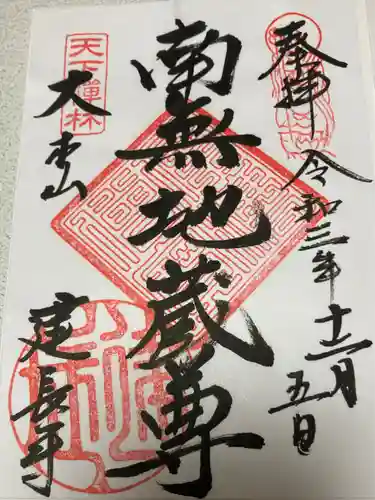 奉拝
令和三年十二月
五日
南無地蔵尊
天下禅林
大本山
建長寺